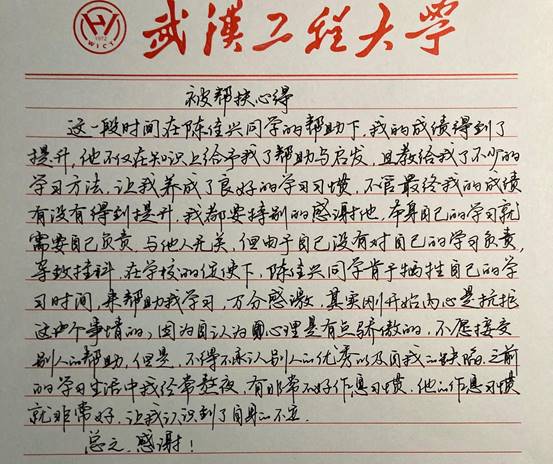 WICT
1972
武汉工程大学
被帮扶心得
这一段时间在陈佳兴同学的帮助下,我的成绩得到了
提升,他不仅在知识上给予我了帮助与启发,且教给我了不少的
学习方法,让我养成了良好的学习习惯,不管最终我的成绩
有没有得到提升,我都要特别的感谢他,本身自己的学习就
需要自己负责,与他人无关,但由于自己没有对自己的学习负责,
导致挂科,在学校的促使下,陈佳兴同学肯于牺牲自己的学
习时间,来帮助我学习,万分感激,其实刚开始内心是抗拒
这个事情的,因为自认为心理是有点骄傲的,不愿接受
别人的帮助,但是,不得不承认别人的优秀以及自我的缺陷,之前
的学习生活中我经常熬夜,有非常不好作息习惯,他的作息习惯
就非常好,让我认识到了自身的不足.
总之,感谢!